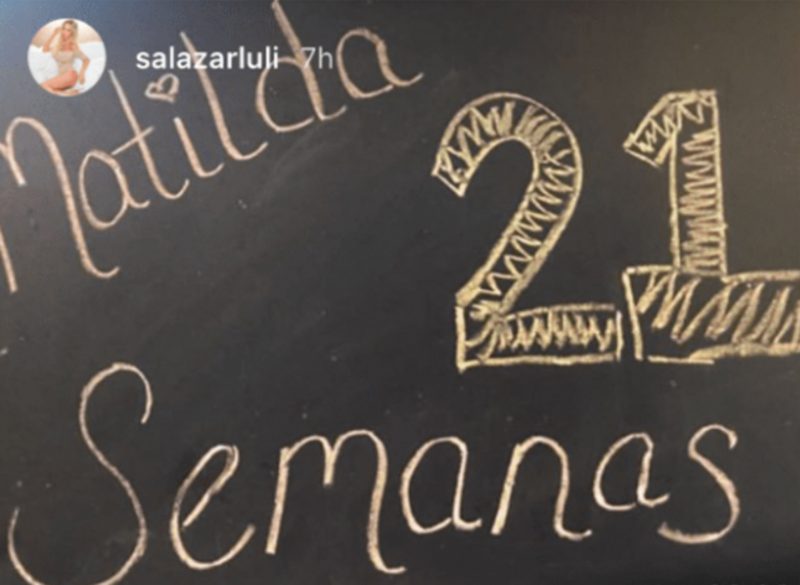 salazarluli 7h
Matilda
21
Semanas